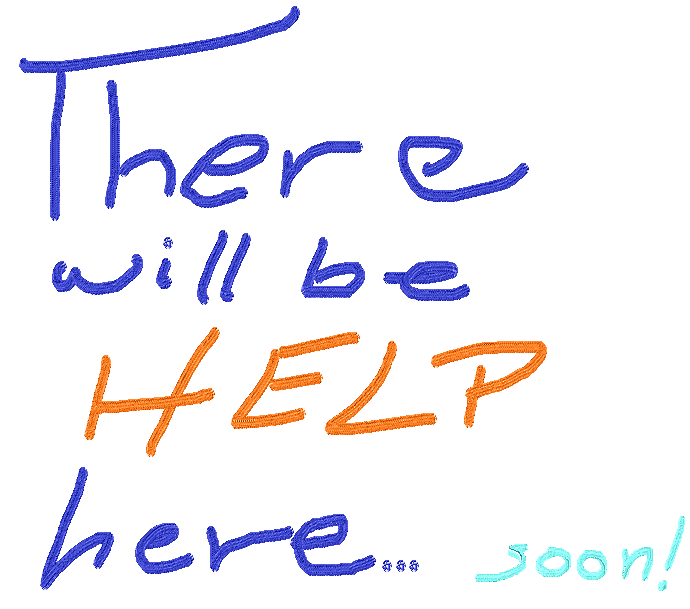 There
will be
HELP
here... soon!